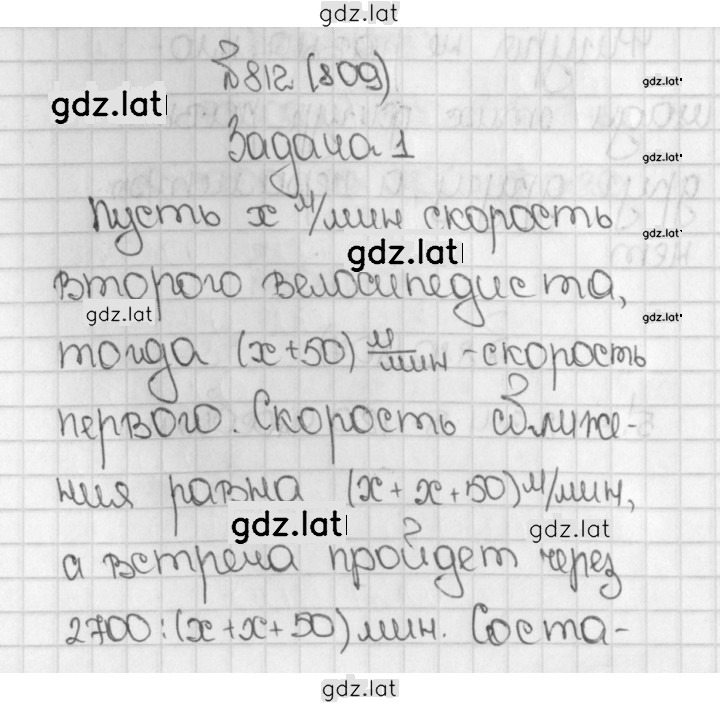 gdz.lat
№812 (809)
gdz.lat
gdz.lat
Задача 1
gdz.lat
Пусть x м/мин скорость
gdz.lat
gdz.lat
второго велосипедиста,
gdz.lat
gdz.lat
тогда (x+50) м/мин - скорость
первого. Скорость сближе-
ния равна (x+x+50) м/мин,
gdz.lat
gdz.lat
а встреча пройдет через
2700:(x+x+50) мин. Соста-
gdz.lat